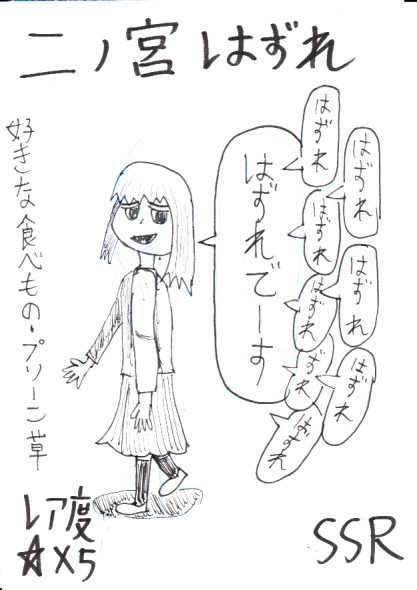 二ノ宮はずれ
はずれ
はずれ
はずれ
はずれでーす
はずれ
はずれ
ずれ
はずれ
はずれ
好きな食べもの・プリーン草
レア度
☆×5
SSR